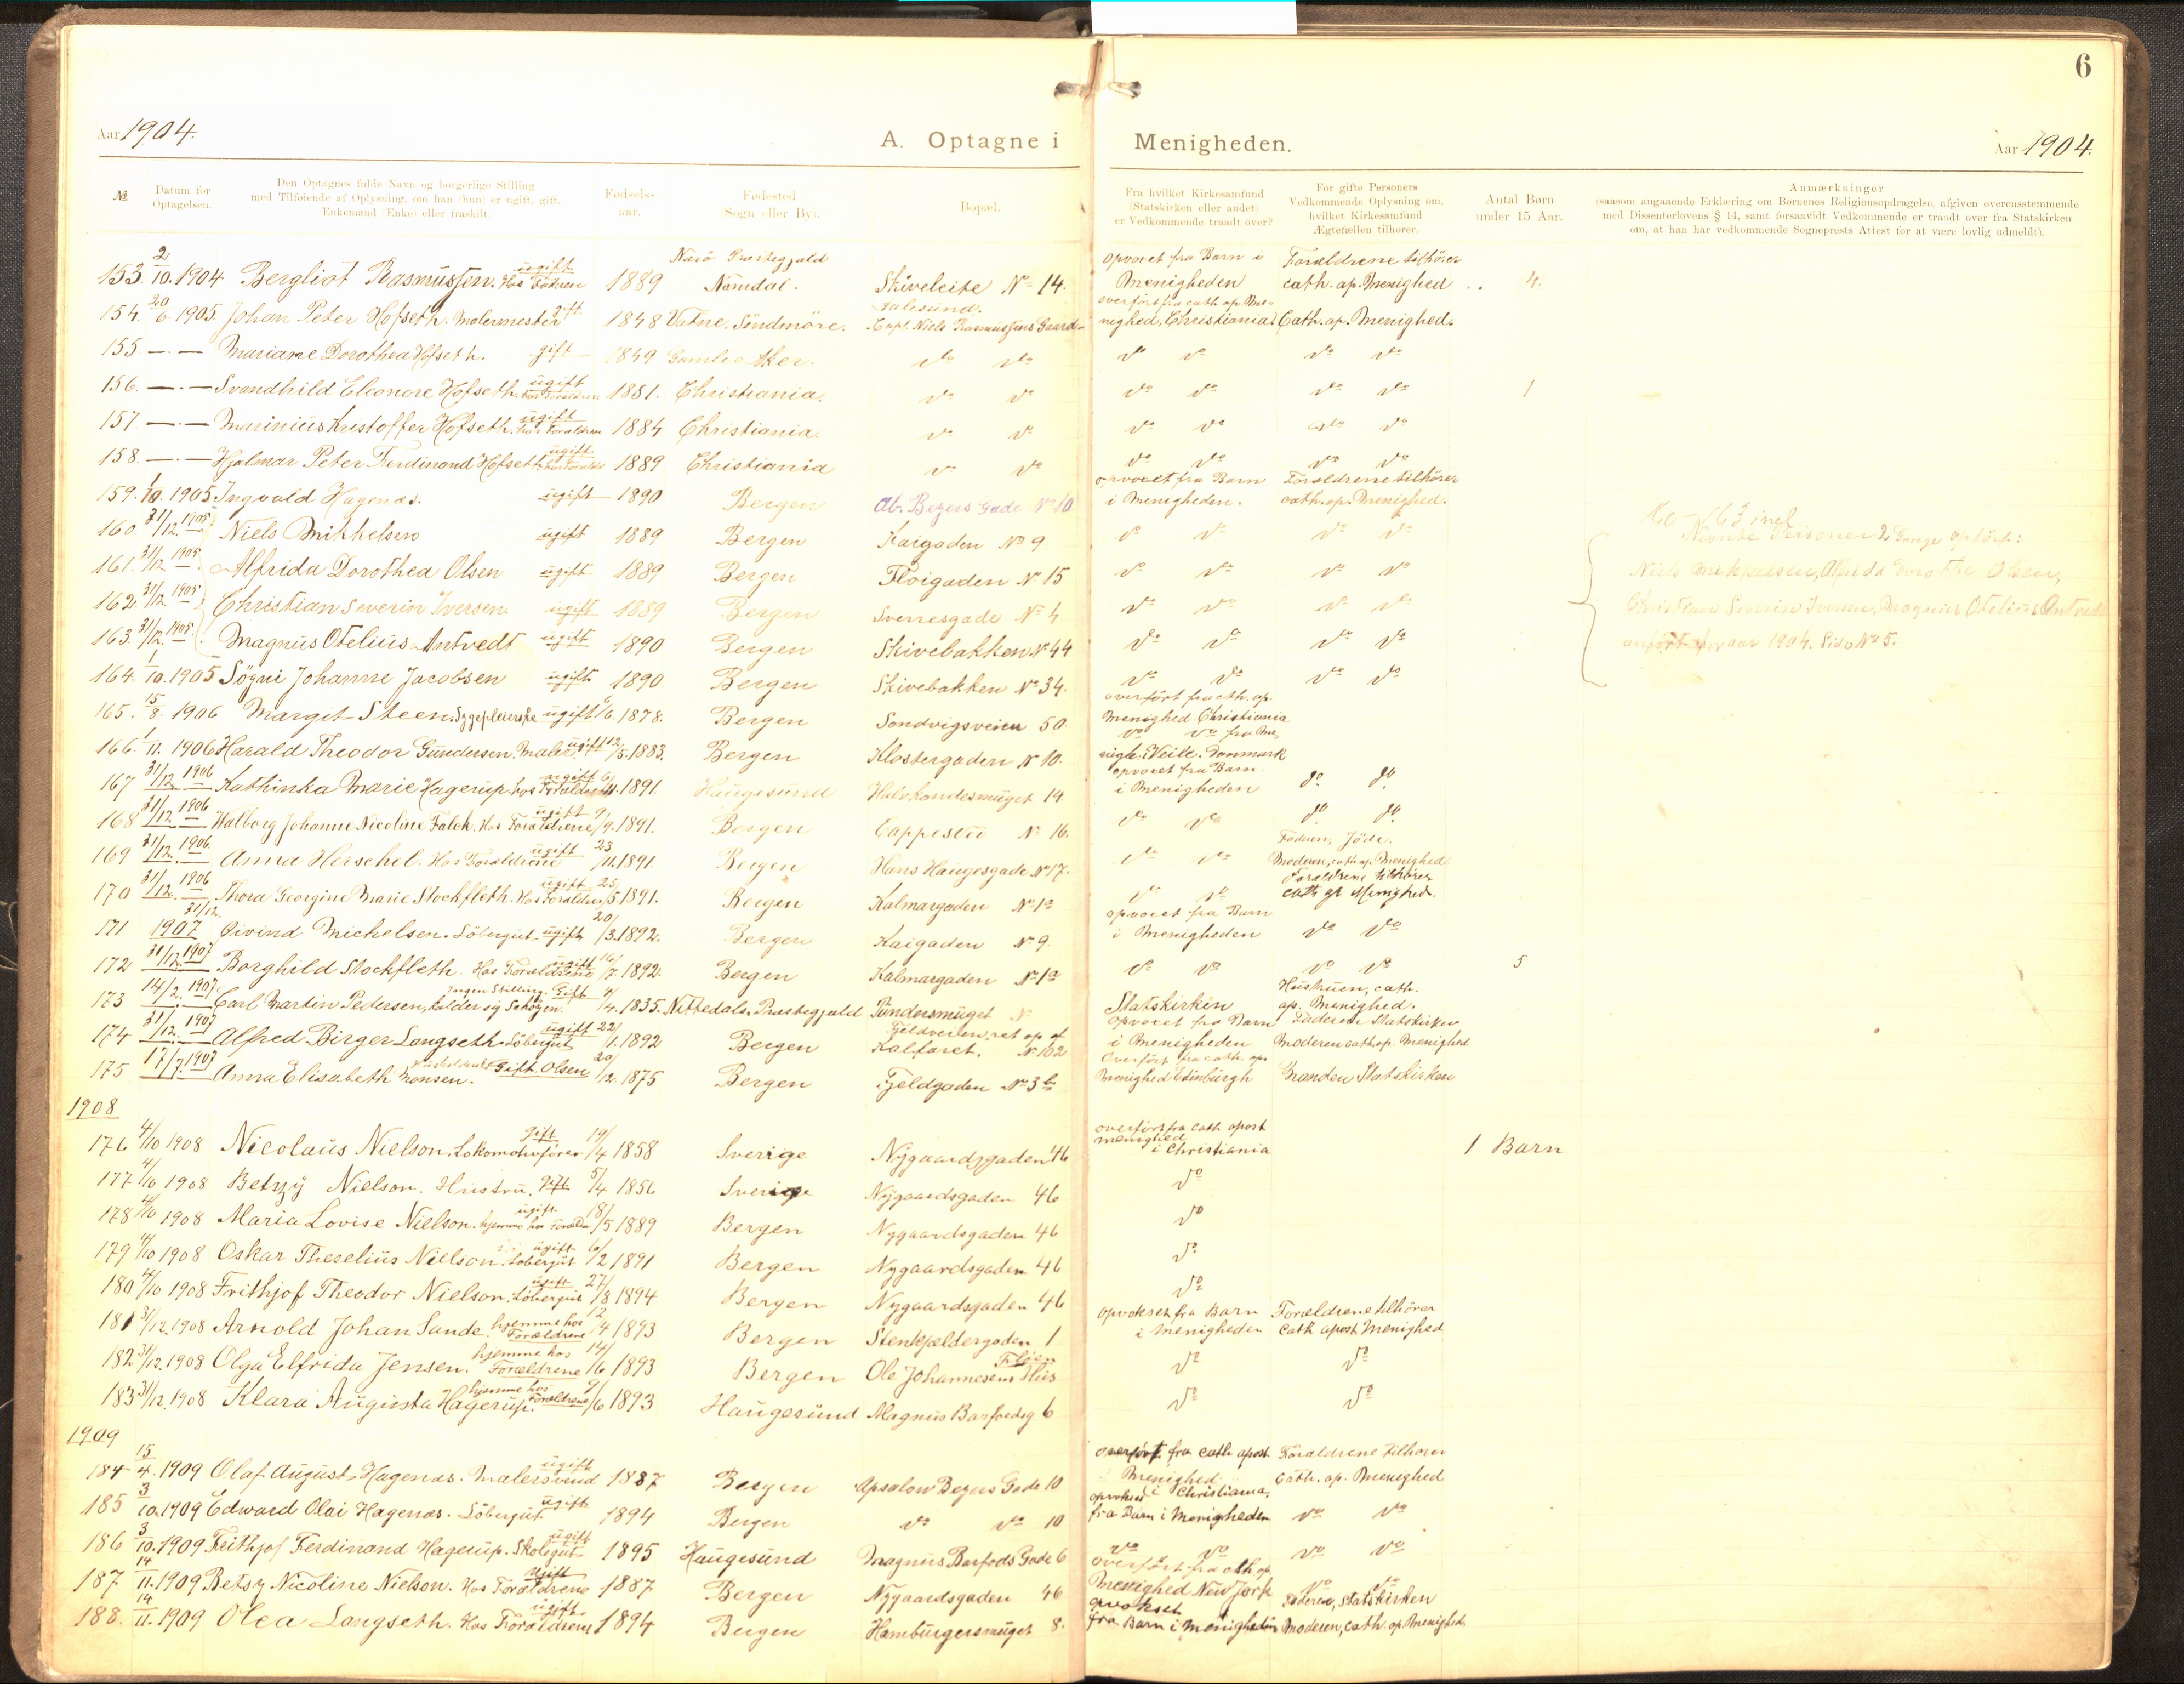 6
Aar 1904.
A. Optagne i Menigheden.
Aar 1904.
№
Datum for Optagelsen.
Den Optagnes fulde Navn og borgerlige Stilling
med Tilføiende af Oplysning, om han (hun) er ugift, gift,
Enkemand (Enke) eller fraskilt.
Fødsels-
aar.
Fødested
(Sogn eller By).
Bopæl.
Fra hvilket Kirkesamfund
(Statskirken eller andet)
er Vedkommende traadt over?
For gifte Personers
Vedkommende Oplysning om,
hvilket Kirkesamfund
Ægtefællen tilhører.
Antal Børn
under 15 Aar.
Anmærkninger
(saasom angaaende Erklæring om Børnenes Religionsopdragelse, afgiven overensstemmende
med Dissenterlovens § 14, samt forsaavidt Vedkommende er traadt over fra Statskirken
om, at han har vedkommende Sogneprests Attest for at være lovlig udmeldt).
153. 2/10. 1904 Bergliot Rasmussen. ugift 1889 Nærö Præstegjæld Namdal. Skiveleite No 14. opvoxet fra Barn i Menigheden Forældrene tilhörer cath. ap. Menighed 4.
154. 20/6. 1905 Johan Peter Hofseth. Malermester gift 1848 Vatne. Söndmöre. Aalesund. Capt. Niels Rasmussens Gaard overfört fra cath. ap. Menighed, Christiania Cath. ap. Menighed.
155 — . — Mariane Dorothea Hofseth. gift 1849 Gamle Aker. do do do do do do
156. — . — Svandhild Eleonore Hofseth. ugift hos Forældrene 1881. Christiania. do do do do do do 1
157. — . — Marinius Kristoffer Hofseth. ugift hos Forældrene 1884 Christiania. do do do do do do
158. — . — Hjalmar Peter Ferdinand Hofseth ugift 1889 Christiania do do do do do do
159. 1/10. 1905 Ingvald Hagenæs. ugift 1890 Bergen Ab. Beyers Gade No 10 opvoxet fra Barn i Menigheden. Forældrene tilhörer cath. ap. Menighed.
160 31/12. 1905 Niels Mikkelsen ugift 1889 Bergen Kaigaden No 9 do do do do
161. 31/12 1905. Alfrida Dorothea Olsen ugift 1889 Bergen Flöigaden No 15 do do do do
162. 31/12 1905 Christian Severin Iversen. ugift 1889 Bergen Sverresgade No 4 do do do do
163. 31/12. 1905. Magnus Otelius Antvedt ugift 1890 Bergen Skivebakken No 44 do do do do
160 - 163 incl.
Nævnte Personer 2 Gange opfört:
Niels Mikkelsen, Alfrida Dorothea Olsen,
Christian Severin Iversen, Magnus Otelius Antvedt
anfört for aar 1904. Side No 5.
164. 1/10. 1905 Sögni Johanne Jacobsen ugift 1890 Bergen Skivebakken No 34. do do do do
165. 15/8. 1906 Margit Steen. Sygepleierske ugift /6. 1878. Bergen Sandvigsveien 50. overfört fra cth. ap. Menighed Christiania
166. 1/11. 1906 Harald Theodor Gundersen. Maler. ugift 12/5. 1883. Bergen Klostergaden No 10. do do fra Menigh. i Veile. Danmark
167 31/12. 1906 Kathinka Marie Hagerup. hos Forældrene ugift 6/11. 1891. Haugesund Halvkandesmuget 14 opvoxet fra Barn i Menigheden do do.
168 31/12. 1906 Walborg Johanne Nicoline Falck. Hos Forældrene ugift 9/9. 1891. Bergen Cappesto No 16. do do do do.
169 31/12. 1906 Anna Herschel. Hos Forældrene ugift 23/11. 1891. Bergen Hans Haugesgade No 17. do do Faderen, Jöde. Moderen, cath. ap. Menighed
170 31/12. 1906 Thora Georgine Marie Stockfleth. Hos Forældrene ugift 25/5. 1891. Bergen Kalmargaden No 1a do do Forældrene tilhörer cath ap Menighed.
171 31/12. 1907 Øivind Michelsen. Löbergut ugift 20/3. 1892. Bergen Kaigaden No 9. opvoxet fra Barn i Menigheden do do
172 31/12. 1907 Borghild Stockfleth. Hos Forældrene ugift 16/7. 1892. Bergen Kalmargaden No 1a do do do do 5
173 14/2. 1907 Carl Martin Pedersen, kalder sig Schöyen. Ingen Stilling. Gift /4. 1835. Nittedals Præstegjæld Pundersmuget No Statskirken Hustruen, cath. ap. Menighed.
174 31/12. 1907 Alfred Birger Langseth. Löbergut ugift 22/1. 1892 Bergen Fjeldveien, ret op af Kalfaret. No 102 opvoxet fra Barn i Menigheden Faderen Statskirken Moderen cath. ap. Menighed
175 17/7. 1907 Anna Elisabeth Monsen. Gift Olsen 20/2. 1875 Bergen Fjeldgaden No 3b Overfört fra cath. ap. Menighed Edinburgh Manden Statskirken
1908
176 4/10 1908 Nicolaus Nielson. Lokomotivförer gift 19/4 1858 Sverige Nygaardsgaden 46 overfört fra Cath. apost menighed i Christiania 1 Barn
177 4/10 1908 Betzy Nielson. Hustru. Gift 5/4 1856 Sverige Nygaardsgaden 46 do
178 4/10 1908 Maria Lovise Nielson. hjemme hos Forældre ugift. 18/5 1889 Bergen Nygaardsgaden 46 do
179 4/10 1908 Oskar Theselius Nielson. Löbergut ugift 6/2 1891 Bergen Nygaardsgaden 46 do
180 4/10 1908 Frithjof Theodor Nielson. Löbergut ugift 27/8 1894 Bergen Nygaardsgaden 46 do
181 31/12. 1908 Arnold Johan Sande. hjemme hos Forældrene 12/4 1893 Bergen Stenkjældergaden 1 opvokset fra Barn i Menigheden Forældrene tilhörer Cath apost Menighed
182 31/12. 1908 Olga Elfrida Jensen. hjemme hos Forældrene 14/6 1893 Bergen Ole Johannesens Hus Flöien do do
183 31/12. 1908 Klara Augusta Hagerup. hjemme hos Forældrene 9/6 1893 Haugesund Magnus Barfodsg 6 do do
1909
184 15/4. 1909 Olaf August Hagenæs. Malersvend ugift 1887 Bergen Apsalon Beyers Gade 10 overfört fra cath apost Menighed i Christiania. Forældrene tilhörer Cath. ap. Menighed
185 3/10. 1909 Edward Olai Hagenæs. Löbergut ugift 1894 Bergen do do 10 opvokset fra Barn i Menigheden do do
186 3/10. 1909 Frithjof Ferdinand Hagerup. Skolegut ugift 1895 Haugesund Magnus Barfods Gade 6 do do do do
187 14/11. 1909 Betsy Nicoline Nielson. Hos Forældrene ugift 1887 Bergen Nygaardsgaden 46 overfört fra cth. ap Menighed New Jork do do
188. 14/11. 1909 Olea Langseth. Hos Forældrene ugift 1894 Bergen Hamburgersmuget 8. opvokset fra Barn i Menigheden Faderen, Statskirken Moderen, cath. ap. Menighed.